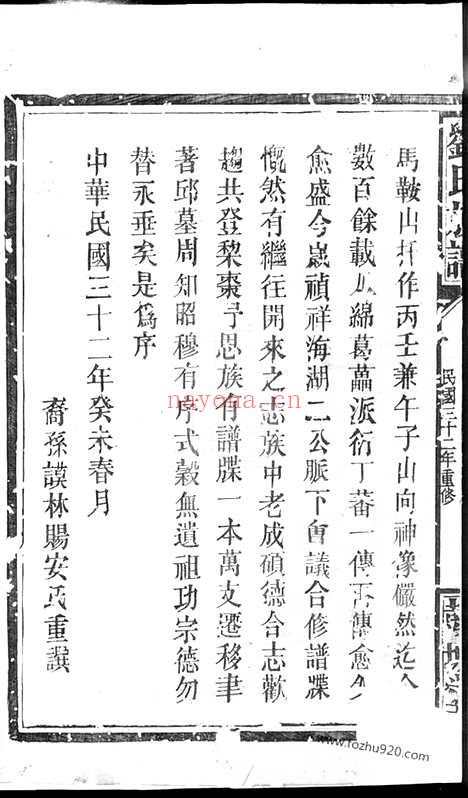 劉氏族譜
民國三十二年重修
馬鞍山扦作丙壬兼午子山向神像儼然迄今
數百餘載瓜綿葛藟派衍丁蕃一傳再傳愈久
愈盛今歲禎祥海湖二公脈下會議合修譜牒
慨然有繼往開來之志族中老成碩德合志歡
趨共登黎棗予思族有譜牒一本萬支遷移聿
著邱墓周知昭穆有序式穀無遺祖功宗德勿
替永垂矣是為序
中華民國三十二年癸未春月
裔孫謨林賜安氏重譔
nayona.cn
www.fozhu920.com